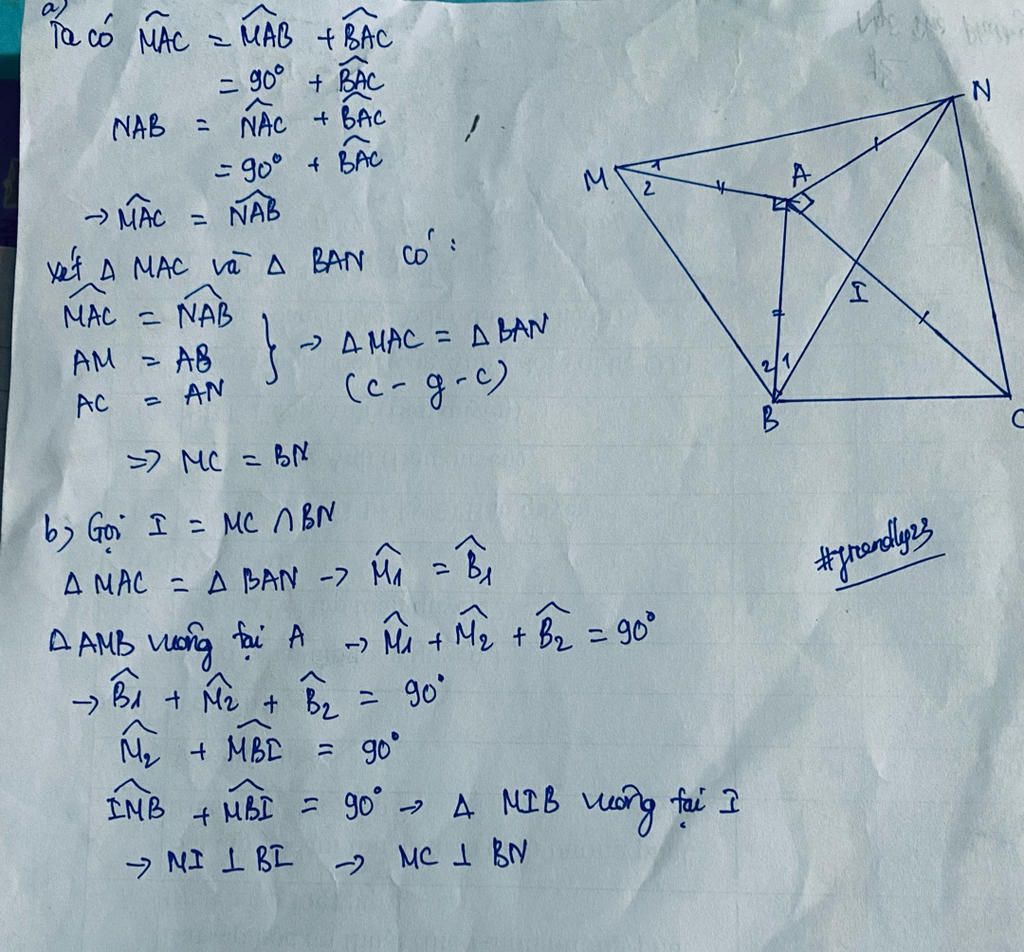 a)
Ta có M̂AC = M̂AB + B̂AC
= 90° + B̂AC
NAB = N̂AC + B̂AC
= 90° + B̂AC
→ M̂AC = N̂AB
xét Δ MAC và Δ BAN có :
M̂AC = N̂AB
AM = AB
AC = AN
} → Δ MAC = Δ BAN
(c - g - c)
=> MC = BN
b) Gọi I = MC ∩ BN
Δ MAC = Δ BAN → M̂1 = B̂1
Δ AMB vuông tại A → M̂1 + M̂2 + B̂2 = 90°
→ B̂1 + M̂2 + B̂2 = 90°
M̂2 + M̂BI = 90°
ÎMB + M̂BI = 90° → Δ MIB vuông tại I
→ MI ⊥ BI → MC ⊥ BN
N
M
1
2
A
I
2 1
B
C